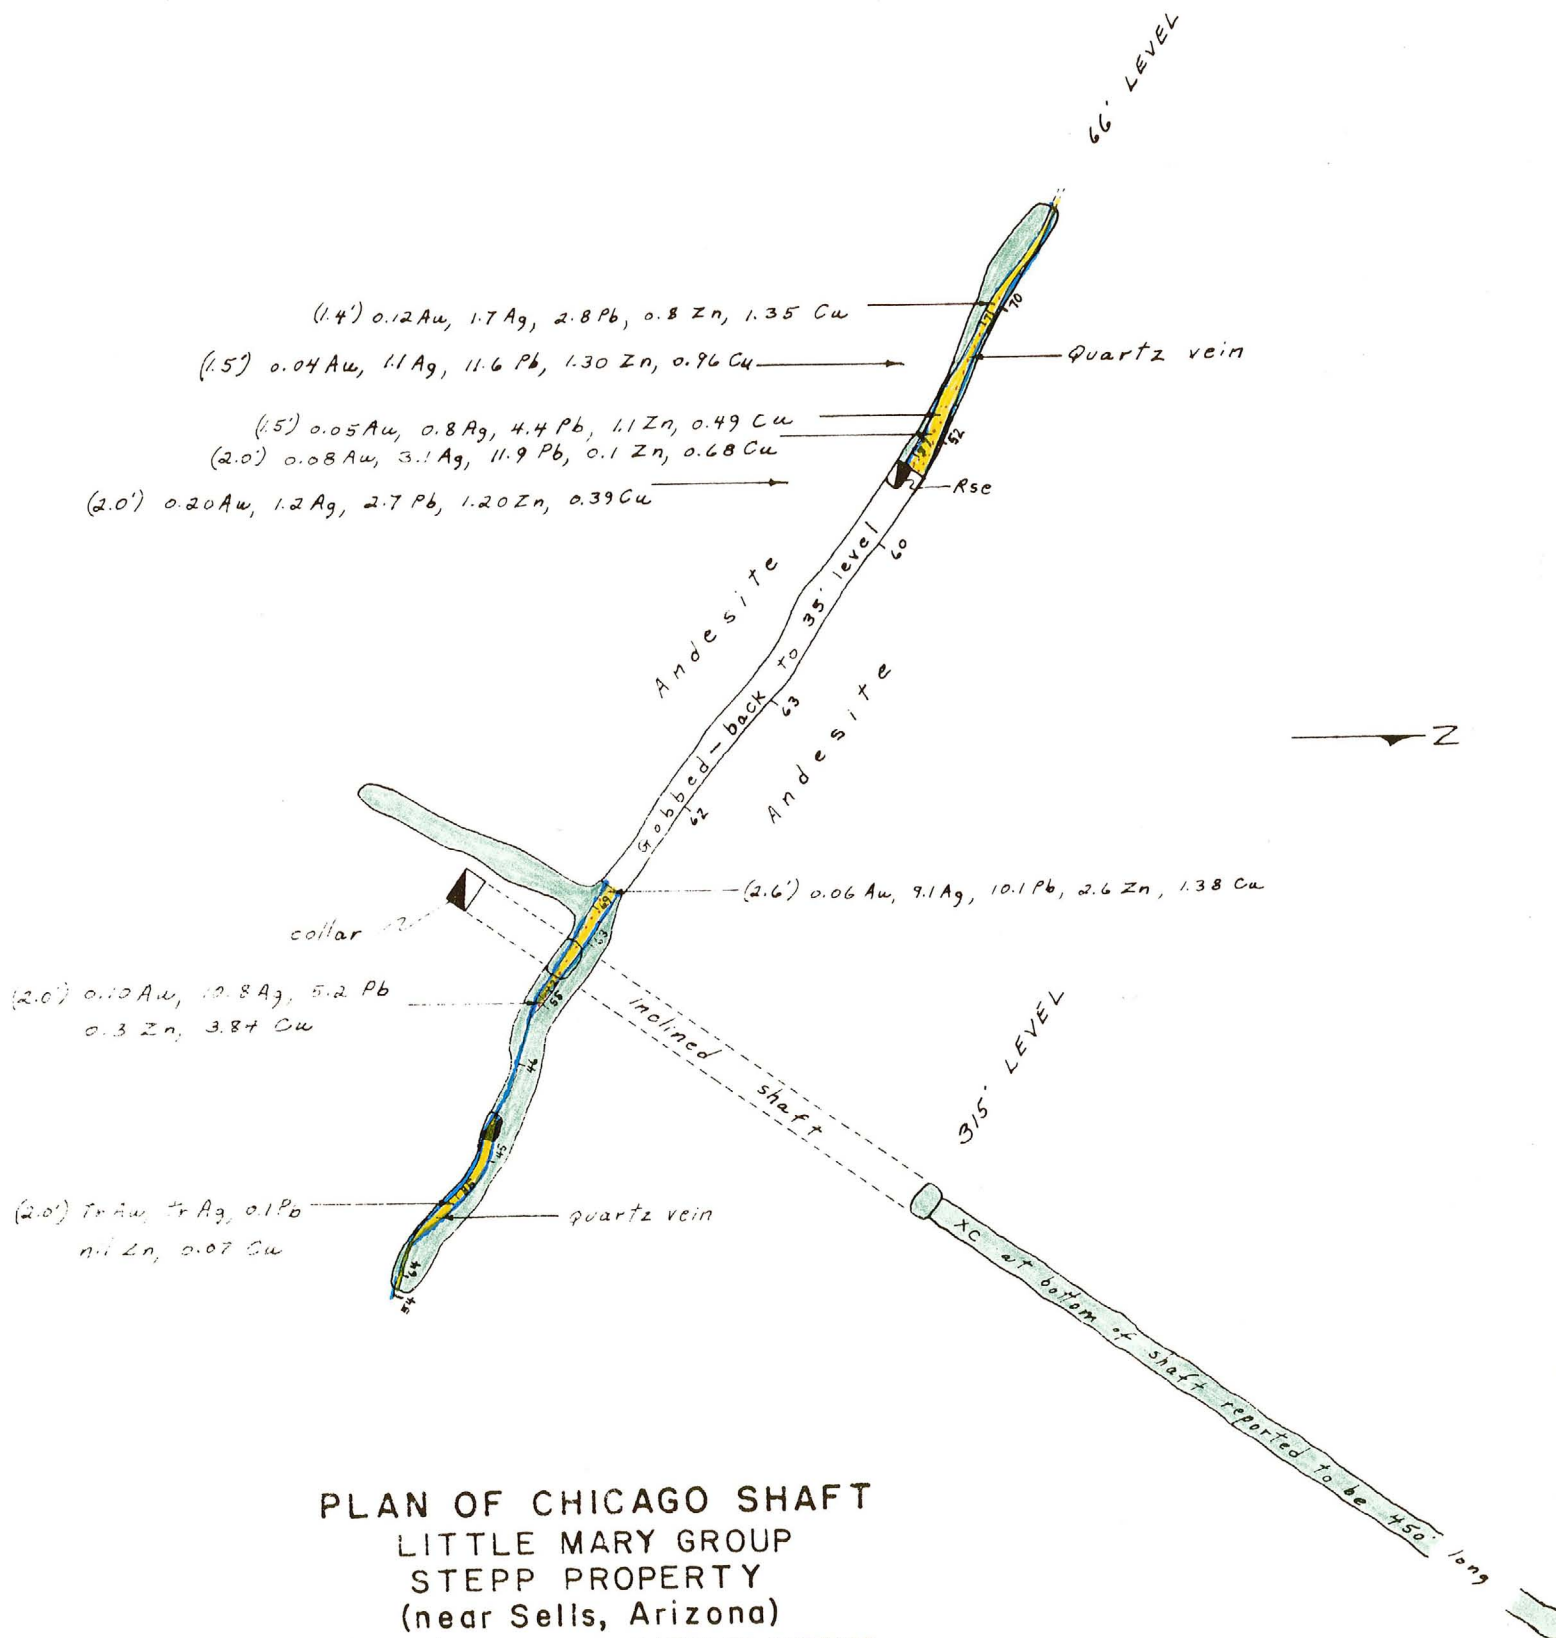 66' LEVEL
(1.4') 0.12 Au, 1.7 Ag, 2.8 Pb, 0.8 Zn, 1.35 Cu
70
71
(1.5') 0.04 Au, 1.1 Ag, 11.6 Pb, 1.30 Zn, 0.96 Cu
Quartz vein
(1.5') 0.05 Au, 0.8 Ag, 4.4 Pb, 1.1 Zn, 0.49 Cu
52
(2.0') 0.08 Au, 3.1 Ag, 11.9 Pb, 0.1 Zn, 0.68 Cu
Rse
(2.0') 0.20 Au, 1.2 Ag, 2.7 Pb, 1.20 Zn, 0.39 Cu
60
Andesite
Gobbed-back to 35' level
63
Andesite
62
N
(2.6') 0.06 Au, 9.1 Ag, 10.1 Pb, 2.6 Zn, 1.38 Cu
69
63
collar
55
(2.0') 0.10 Au, 10.8 Ag, 5.2 Pb
0.3 Zn, 3.84 Cu
inclined shaft
46
315' LEVEL
45
(2.0') Tr Au, tr Ag, 0.1 Pb
quartz vein
Zn, 0.07 Cu
64
54
XC at bottom of shaft reported to be 450' long
PLAN OF CHICAGO SHAFT
LITTLE MARY GROUP
STEPP PROPERTY
(near Sells, Arizona)